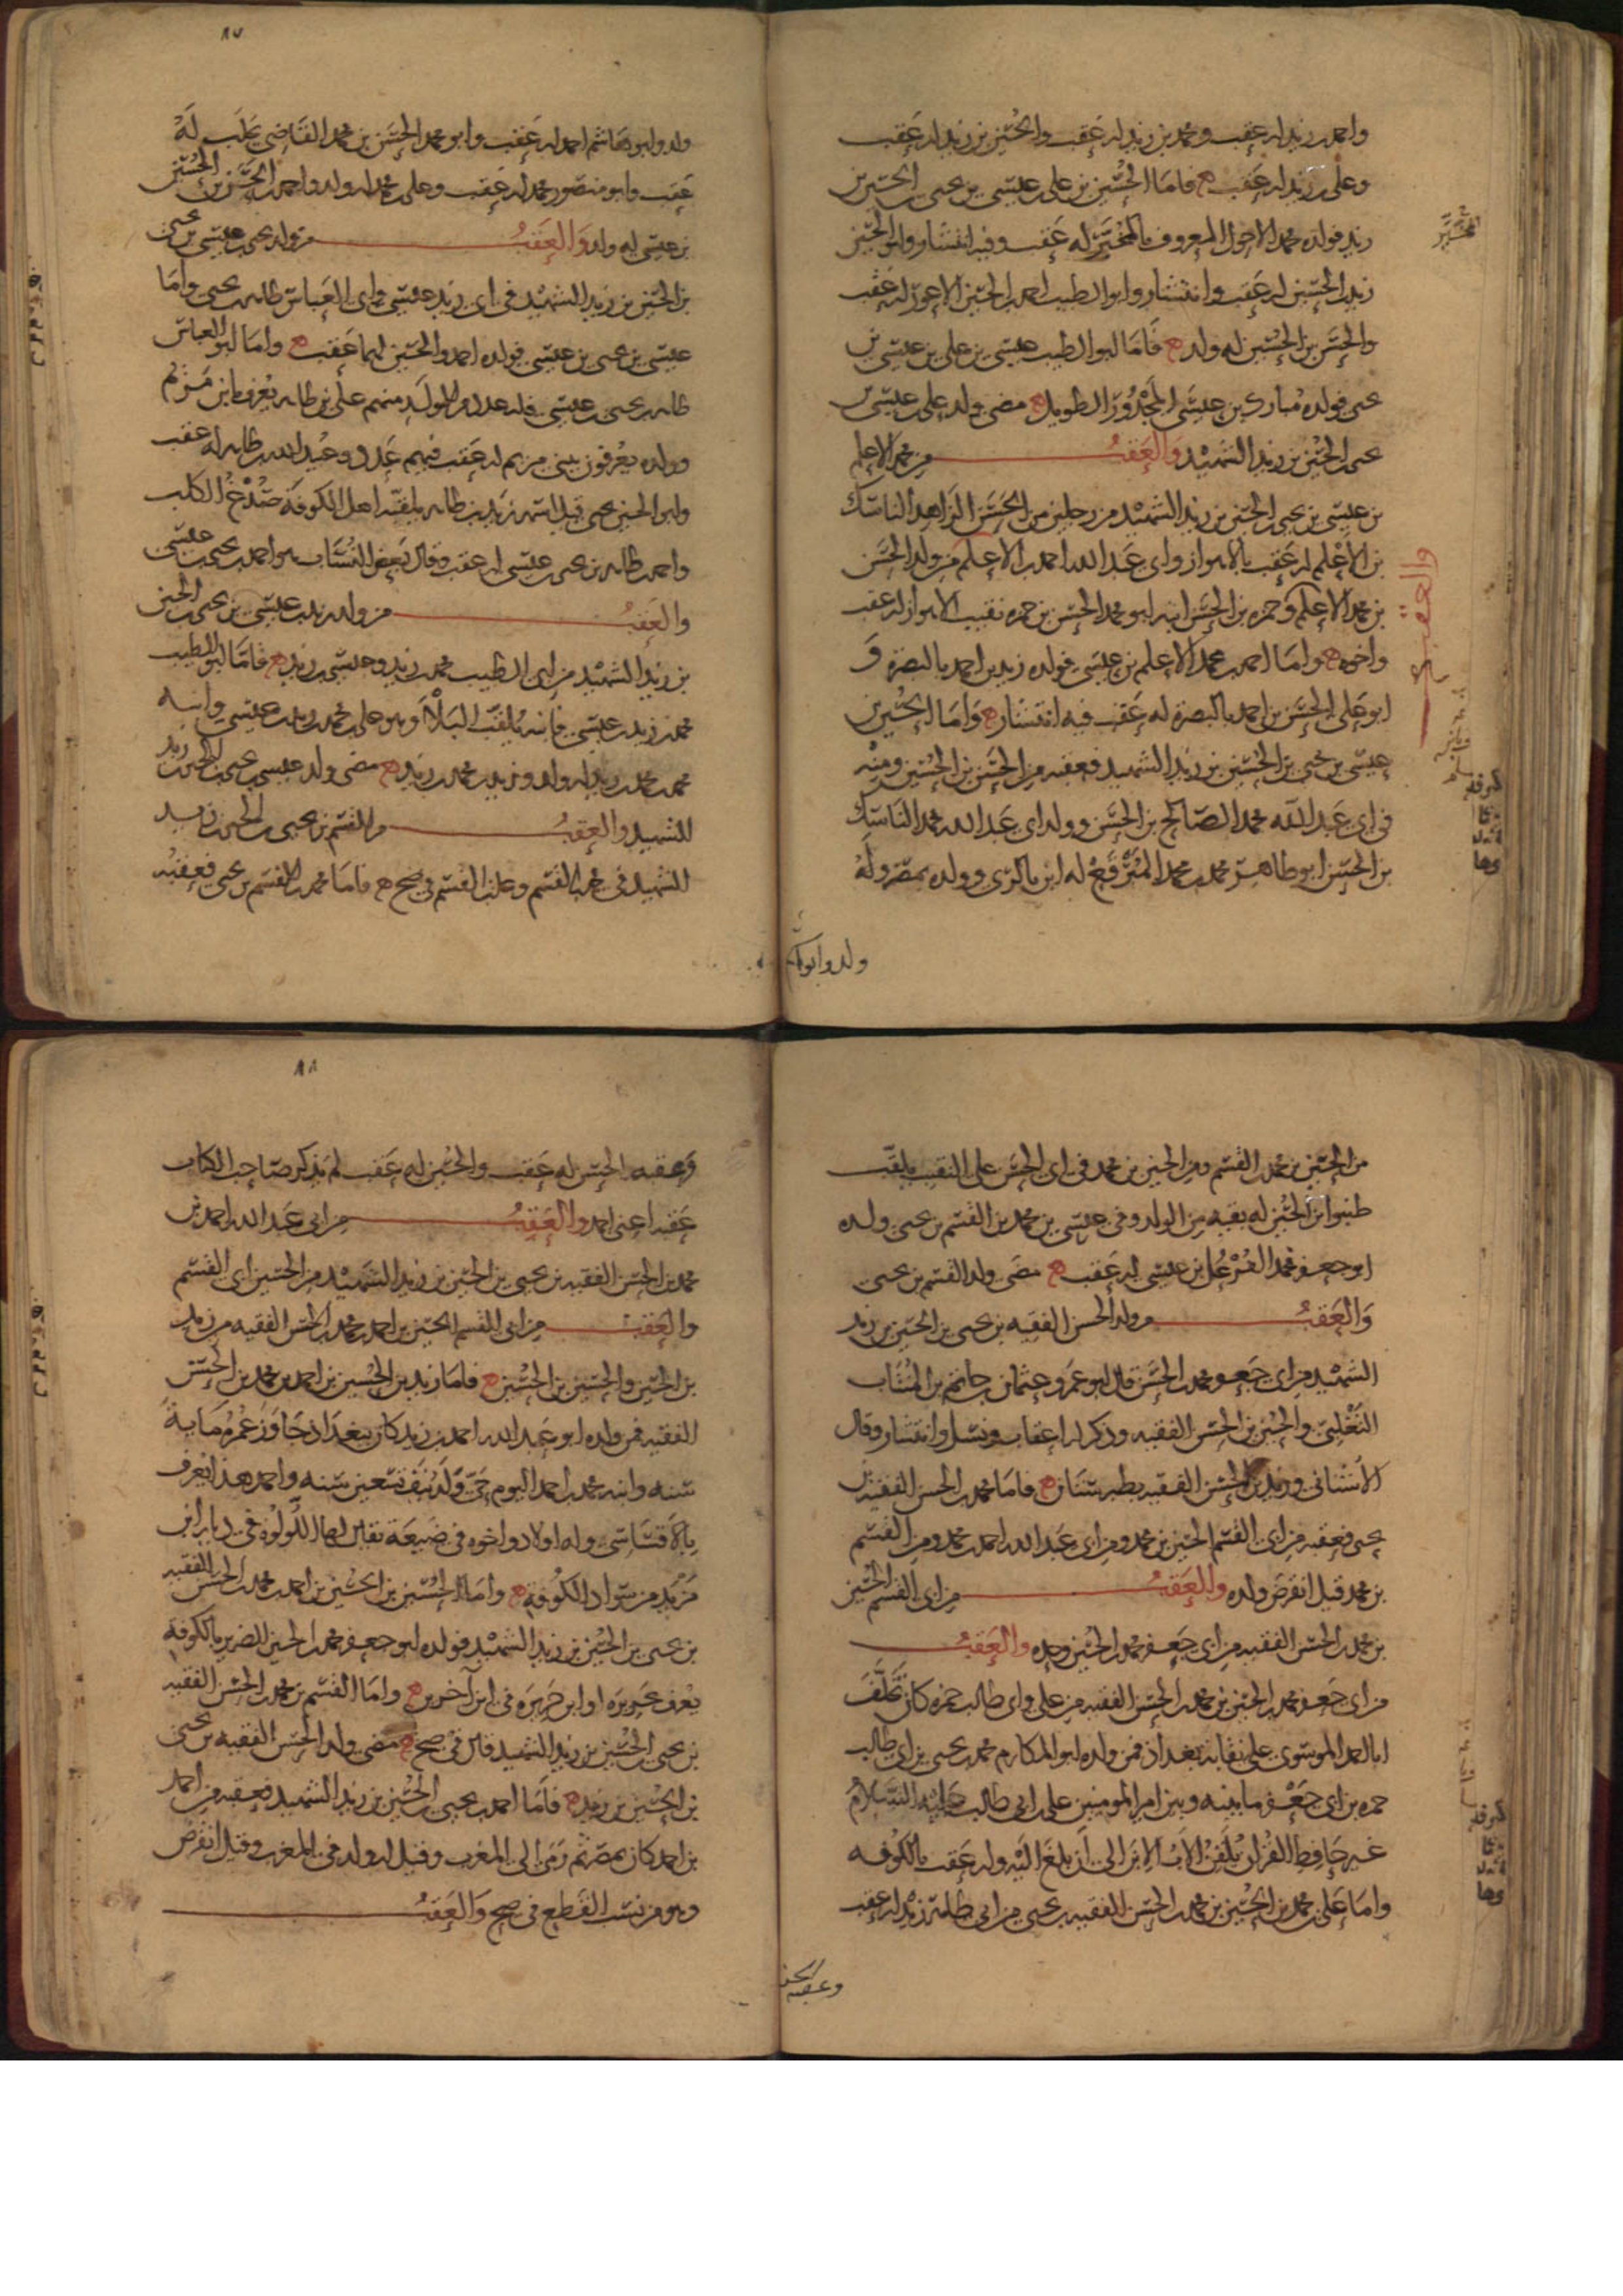 واحمد بن زيد له عقب ومحمد بن زيد له عقب والحسين بن زيد له عقب
وعلي بن زيد له عقب ه فاما الحسين بن علي بن عيسى بن يحيى بن الحسين بن
زيد فولده محمد الاحول المعروف له عقب وفيه انتشار وابو الحسين
زيد بن الحسين له عقب وانتشار وابو الطيب احمد بن الحسين الاعور له عقب
والحسن بن الحسين له ولد ه فاما ابو الطيب عيسى بن علي بن عيسى بن
يحيى فولده مبارك بن عيسى المجدور الطويل ه مضى ولد علي بن عيسى بن
يحيى بن الحسين بن زيد الشهيد والعقب من محمد الاعلم
بن عيسى بن يحيى بن الحسين بن زيد الشهيد من رجلين من الحسن الزاهد الناسك
بن الاعلم له عقب بالاهواز وابي عبد الله احمد بن الاعلم من ولد الحسن
بن محمد الاعلم وحمزه بن الحسن ابنه ابو محمد الحسن بن حمزه نقيب الاهواز له عقب
واخوه ه واما احمد بن محمد الاعلم بن عيسى فولده زيد بن احمد بالبصرة و
ابو علي الحسن بن احمد بالبصرة له عقب فيه انتشار ه واما الحسين بن
عيسى بن يحيى بن الحسين بن زيد الشهيد فعقبه من الحسن بن الحسين ومنه
في ابي عبد الله محمد الصالح بن الحسن وولد ابي عبد الله محمد الناسك
بن الحسن ابو طاهر محمد بن محمد المترفع له ابن بالري وولده بمصر وله
ولد وابو
٨٧
ولد وابو هاشم احمد له عقب وابو محمد الحسن بن محمد القاضي بحلب له
عقب وابو منصور محمد له عقب وعلي بن محمد له ولد واحمد بن الحسن بن الحسين
بن عيسى له ولد والعقب من ولد يحيى بن عيسى بن يحيى
بن الحسين بن زيد الشهيد في ابي زيد عيسى وابي العباس طاهر بن يحيى واما
عيسى بن يحيى بن عيسى فولده احمد والحسين لهما عقب ه واما ابو العباس
طاهر بن يحيى بن عيسى فله عدد من الولد منهم علي بن طاهر يعرف بابن مريم
وولده يعرفون ببني مريم له عقب فيهم عدد وعبيد الله بن طاهر له عقب
وابو الحسين يحيى قيل اسمه زيد بن طاهر يلقبه اهل الكوفة صدغ الكلب
واحمد بن طاهر بن يحيى بن عيسى له عقب وقال بعض النساب هو احمد بن يحيى بن عيسى
والعقب من ولد زيد بن عيسى بن يحيى بن الحسين
بن زيد الشهيد من ابي الطيب محمد بن زيد وعيسى بن زيد ه فاما ابو الطيب
محمد بن زيد بن عيسى فابنه يلقب البلا وهو علي بن محمد بن زيد بن عيسى وابنه
محمد بن محمد بن زيد له ولد وزيد بن محمد بن زيد ه مضى ولد عيسى بن يحيى بن الحسين بن زيد
الشهيد والعقب من القسم بن يحيى بن الحسين بن زيد
الشهيد في محمد بن القسم وعلي بن القسم في صح ه فاما محمد بن القسم بن يحيى فعقبه
من الحسين بن محمد بن القسم ومن الحسين بن محمد في ابي الحسن علي النقيب يلقب
ابن الحسين له بقية من الولد وفي عيسى بن محمد بن القسم بن يحيى ولده
ابو جعفر محمد القزعل بن عيسى له عقب ه مضى ولد القسم بن يحيى
والعقب من ولد الحسن الفقيه بن يحيى بن الحسين بن زيد
الشهيد من ابي جعفر محمد بن الحسن قال ابو عمرو عثمان بن حاتم بن المنتاب
التغلبي والحسين بن الحسن الفقيه وذكر له اعقاب ونسل وانتشار وقال
الاشناني وزيد بن الحسن الفقيه بطبرستان ه فاما محمد بن الحسن الفقيه بن
يحيى فعقبه من ابي القسم الحسين بن محمد ومن ابي عبد الله احمد بن محمد ومن القسم
بن محمد قيل انقرض ولده والعقب من ابي القسم الحسين
بن محمد بن الحسن الفقيه من ابي جعفر محمد بن الحسين وحده والعقب
من ابي جعفر محمد بن الحسين بن محمد بن الحسن الفقيه من علي وابي طالب حمزه كان تخلف
ابا احمد الموسوي على نقابة بغداذ فمن ولده ابو المكارم محمد بن يحيى بن ابي طالب
حمزه بن ابي جعفر ما بينه وبين امير المومنين علي بن ابي طالب عليه السلام
غير حافظ القران يلقن الاب الابن الى ان بلغ اليه وله عقب بالكوفه
واما علي بن محمد بن الحسين بن محمد بن الحسن الفقيه بن يحيى من ابي طالب زيد له عقب
وعقبه
٨٨
وعقبه الحسن له عقب والحسين له عقب لم يذكر صاحب الكتاب
عقبه اعني احمد والعقب من ابي عبد الله احمد بن
محمد بن الحسن الفقيه بن يحيى بن الحسين بن زيد الشهيد من الحسين ابي القسم
والعقب من ابي القسم الحسين بن احمد بن محمد بن الحسن الفقيه من زيد
بن الحسين والحسين بن الحسين ه فاما زيد بن الحسين بن احمد بن محمد بن الحسن
الفقيه فمن ولده ابو عبد الله احمد بن زيد كان ببغداذ جاوز عمره ماية
سنه وابنه محمد بن احمد اليوم حي وله نيف تسعين سنه واحمد هذا يعرف
بالاقساسي وله اولاد واخوه في ضيعة يقال لها اللولوه في ديار ابن
مزيد من سواد الكوفة ه واما الحسين بن الحسين بن احمد بن محمد بن الحسن الفقيه
بن يحيى بن الحسين بن زيد الشهيد فولده ابو جعفر محمد بن الحسين الضرير بالكوفة
يعرف او ابن في ابن آخرين ه واما القسم بن محمد بن الحسن الفقيه
بن يحيى بن الحسين بن زيد الشهيد في صح ه مضى ولد الحسن الفقيه بن يحيى
بن الحسين بن زيد ه فاما احمد بن يحيى بن الحسين بن زيد الشهيد فعقبه من احمد
بن احمد كان بمصر ثم رمى الى المغرب وقيل له ولد في المغرب وقيل انقرض
وهو من نسب القطع في صح والعقب